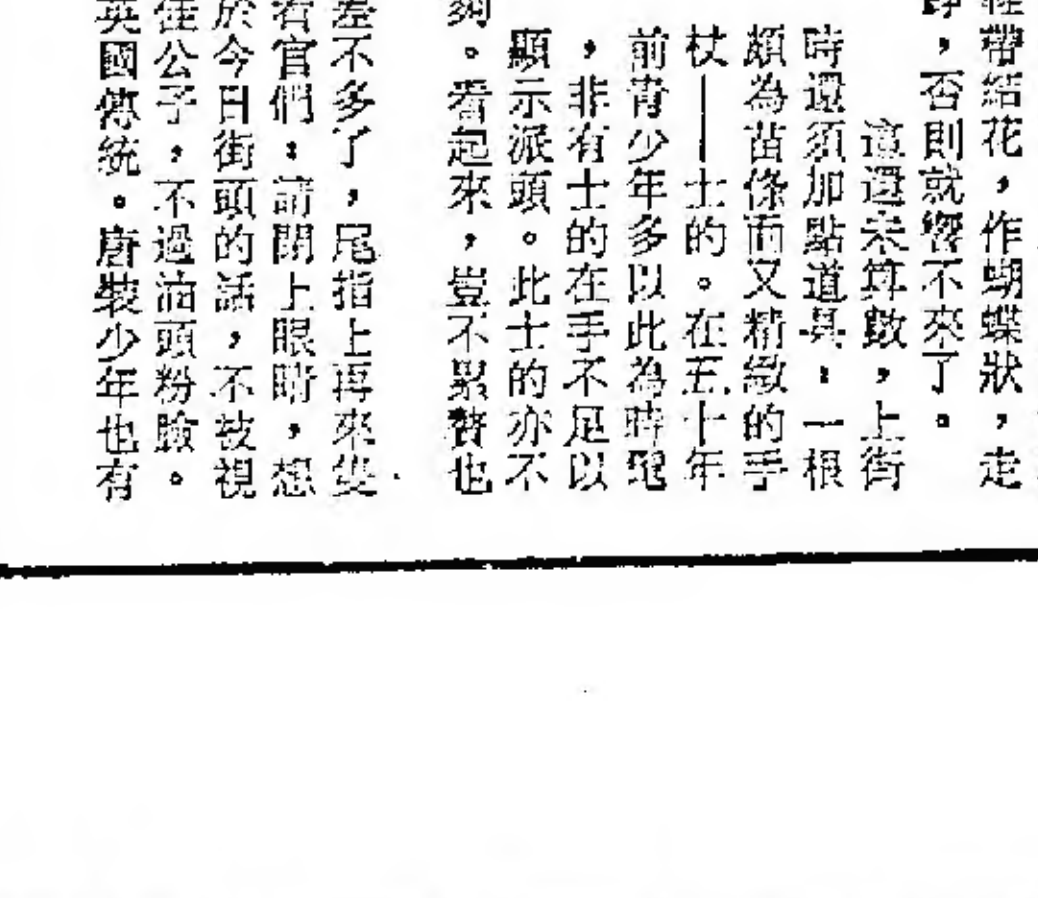 鞋帶結花，作蝴蝶狀，走
，否則就響不來了。
這還未算數，上街
時還須加點道具：一根
頗為苗條而又精緻的手
杖——士的。在五十年
前青少年多以此為時髦
，非有士的在手不足以
顯示派頭。此士的亦不
夠。看起來，豈不累贅也
差不多了，尾指上再來隻
看官們：請閉上眼睛，想
於今日街頭的話，不被視
佳公子，不過油頭粉臉。
英國傳統。唐裝少年也有